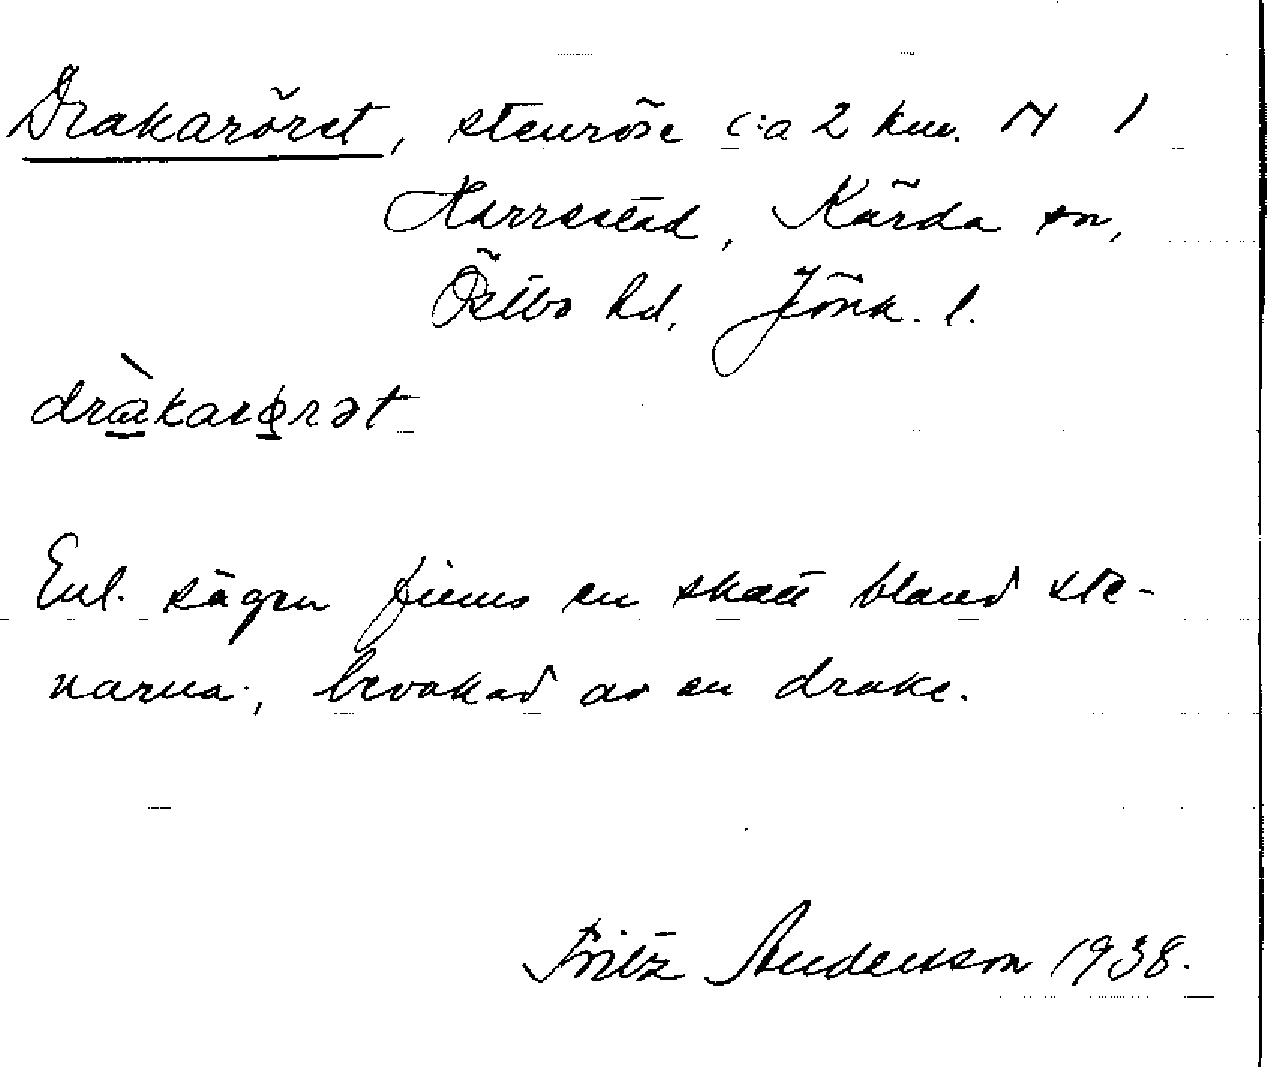 Drakaröret, stenröse c:a 2 km. N /
Harrestad, Kärda sn,
Östbo hd, Jönk. l.
dràkarørət
Enl. sägen finns en skatt bland ste-
narna, bevakad av en drake.
Fritz Andersson 1938.